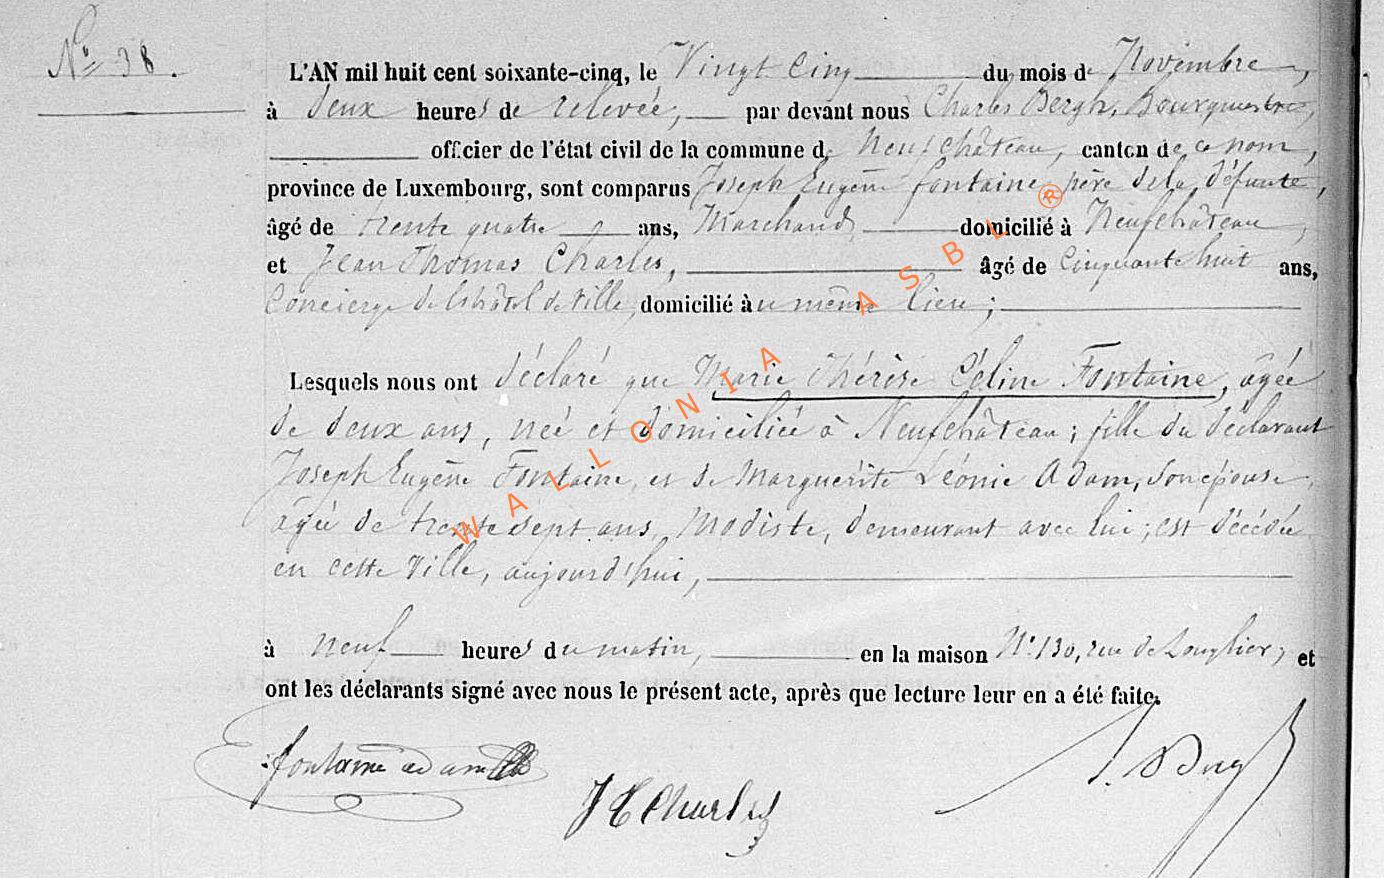 N° 38.
L'AN mil huit cent soixante-cinq, le Vingt Cinq du mois de Novembre,
à deux heures de relevée, par devant nous Charles Bergh, Bourgmestre,
officier de l'état civil de la commune de Neufchâteau, canton de ce nom,
province de Luxembourg, sont comparus Joseph Eugène fontaine, père de la défunte,
âgé de trente quatre ans, Marchand, domicilié à Neufchâteau,
et Jean Thomas Charles, âgé de Cinquante huit ans,
Concierge de l'hôtel de Ville, domicilié au même lieu ;
Lesquels nous ont déclaré que Marie Thérèse Céline Fontaine, âgée
de deux ans, née et domiciliée à Neufchâteau ; fille du déclarant
Joseph Eugène Fontaine, et de Marguérite Léonie Adam, son épouse,
âgée de trente sept ans, Modiste, demeurant avec lui, est décédée
en cette Ville, aujourd'hui,
à neuf heures du matin, en la maison N° 130, rue de Longlier, et
ont les déclarants signé avec nous le présent acte, après que lecture leur en a été faite.
fontaine adam
J T Charles
WALLONIA ASBL ®